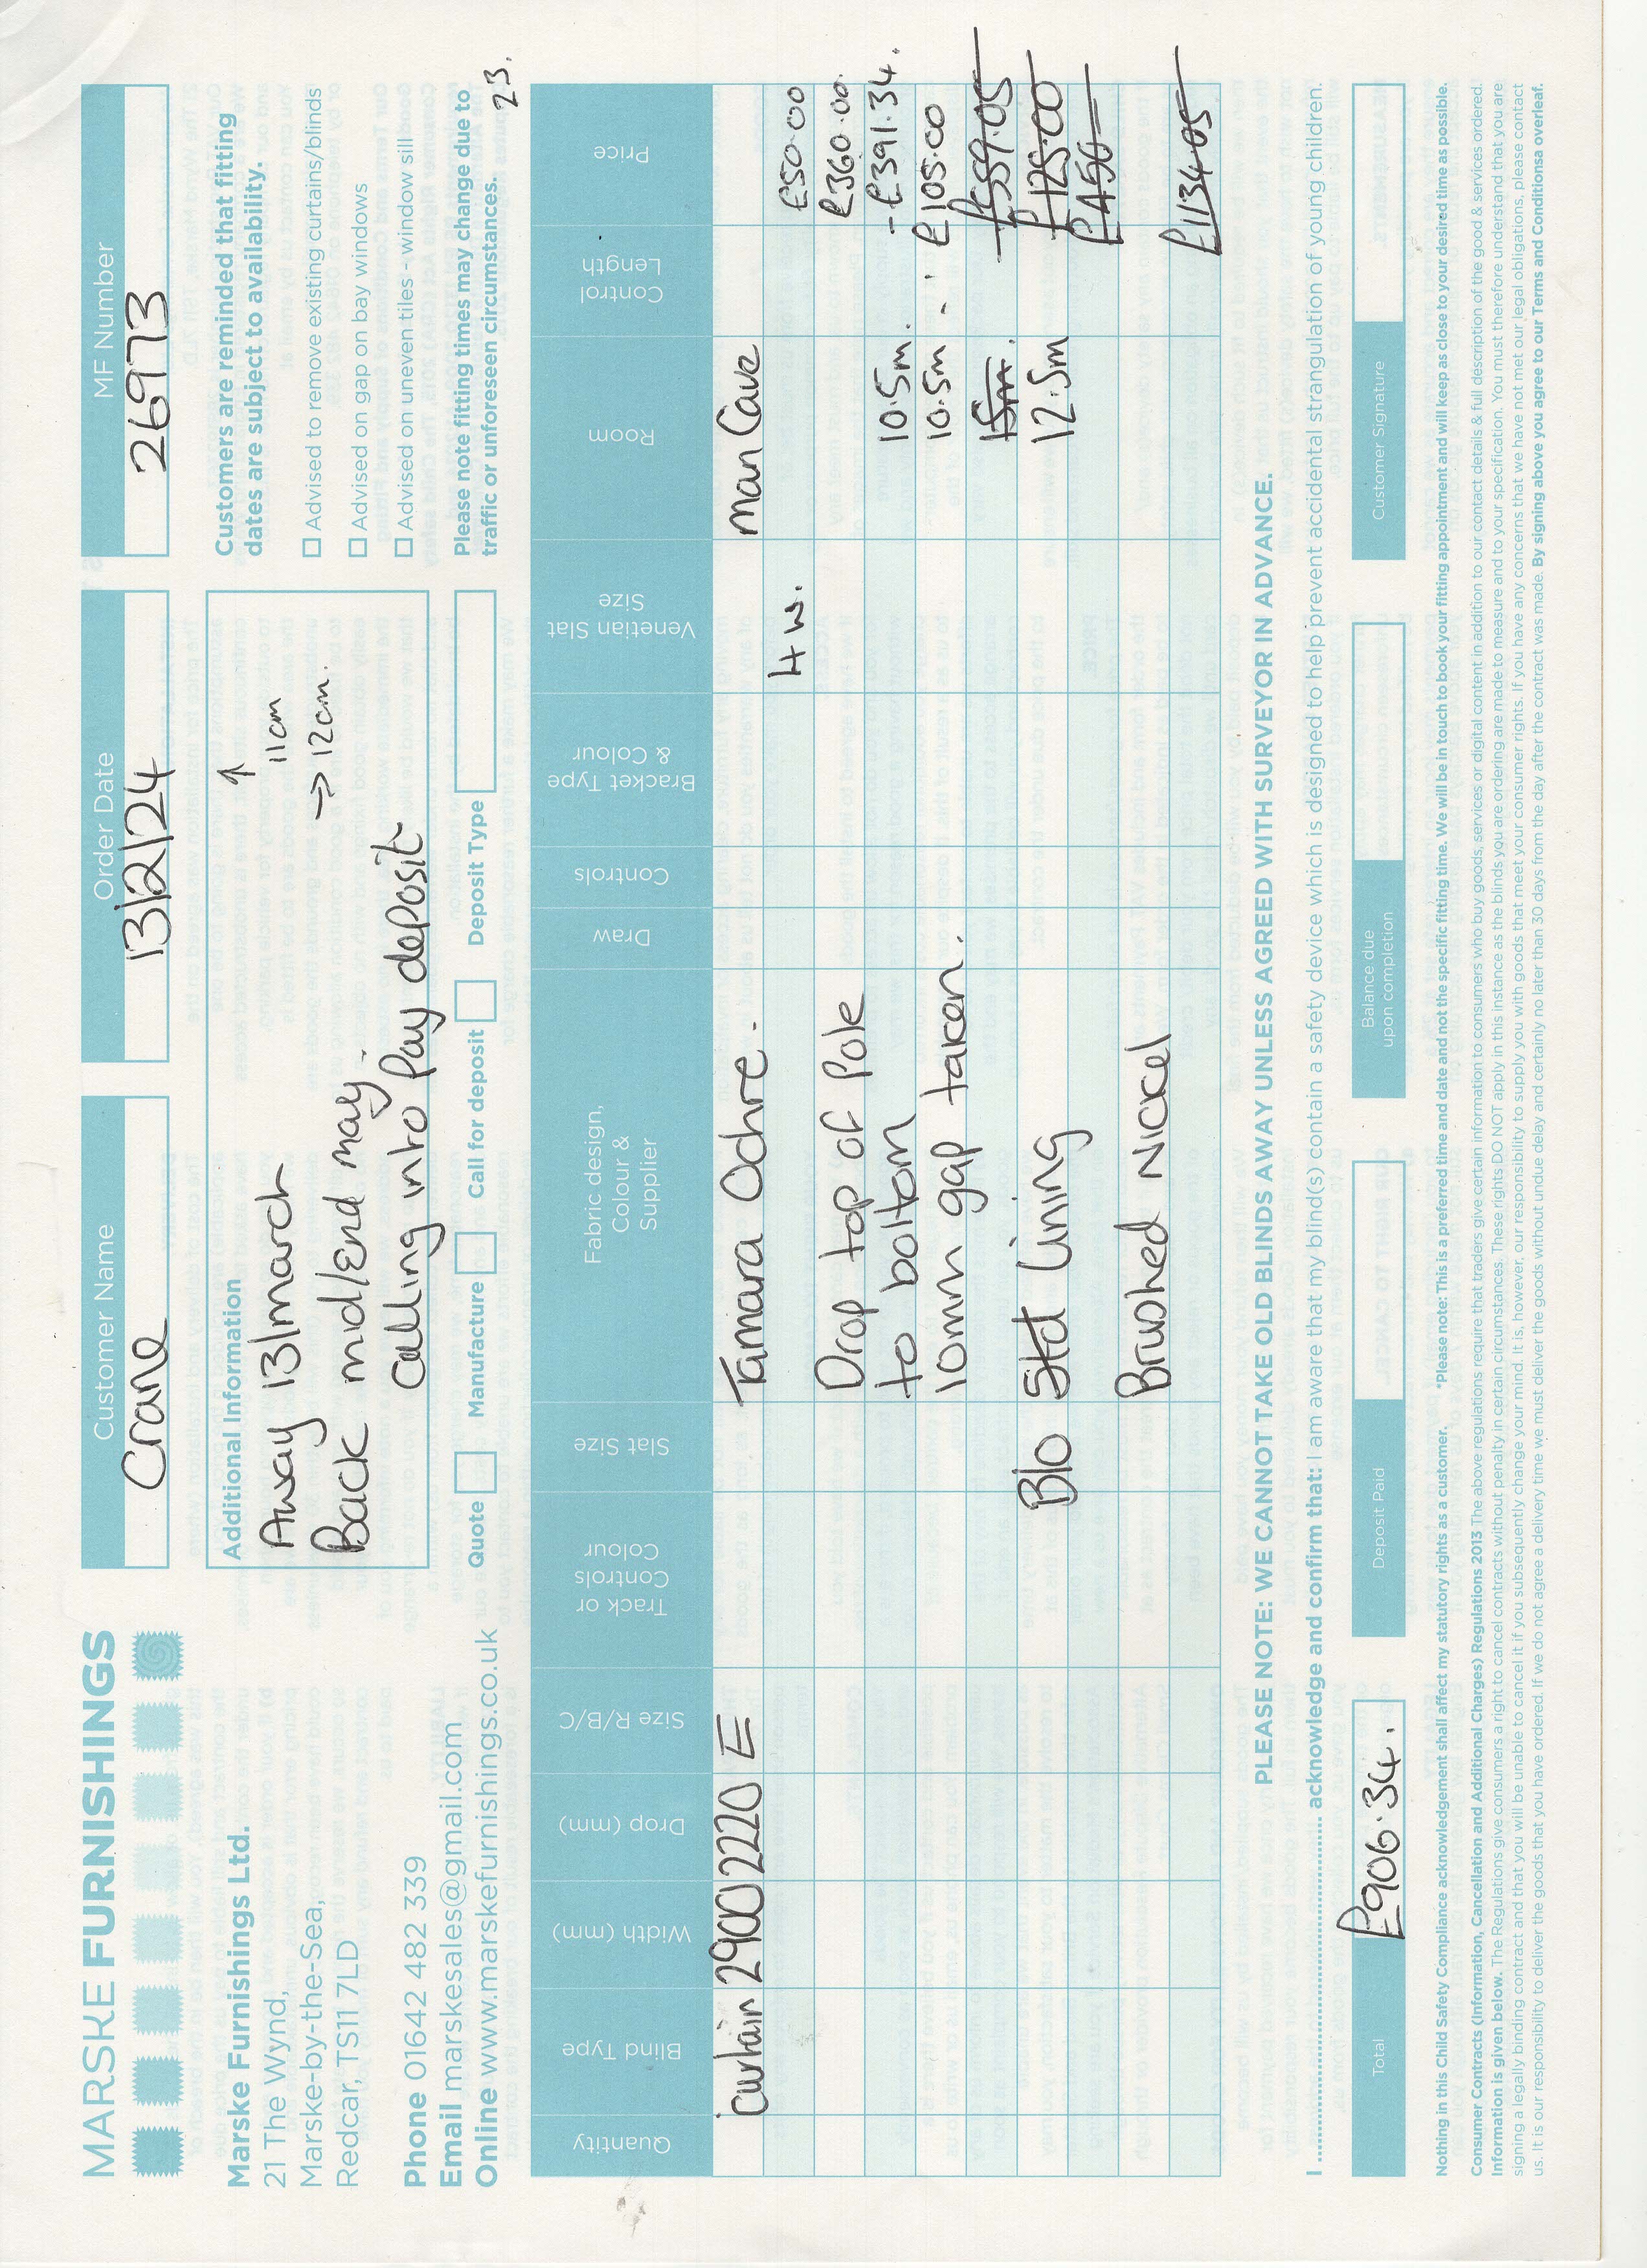 MARSKE FURNISHINGS
Marske Furnishings Ltd.
21 The Wynd,
Marske-by-the-Sea,
Redcar, TS11 7LD
Phone 01642 482 339
Email marskesales@gmail.com
Online www.marskefurnishings.co.uk
Customer Name
Crane
Order Date
13/2/24
MF Number
26973
Additional Information
Away 13/march
Back mid/End may.
Calling into Pay deposit
↑
11cm
→ 12cm.
Quote
Manufacture
Call for deposit
Deposit Type
Customers are reminded that fitting
dates are subject to availability.
Advised to remove existing curtains/blinds
Advised on gap on bay windows
Advised on uneven tiles - window sill
Please note fitting times may change due to
traffic or unforeseen circumstances.
23.
Quantity
Blind Type
Width (mm)
Drop (mm)
Size R/B/C
Track or
Controls
Colour
Slat Size
Fabric design,
Colour &
Supplier
Draw
Controls
Bracket Type
& Colour
Venetian Slat
Size
Room
Control
Length
Price
Curtain 2900 2220 E Tamara Ochre. man Cave
4 w. £50.00
Drop top of Pole £360.00.
to bottom 10.5m. - £391.34.
10mm gap taken. 10.5m - £105.00
15m. £559.05
Blo Std Lining 12.5m £125.00
£450
Brushed Nickel
£1134.05
PLEASE NOTE: WE CANNOT TAKE OLD BLINDS AWAY UNLESS AGREED WITH SURVEYOR IN ADVANCE.
I .......................................... acknowledge and confirm that: I am aware that my blind(s) contain a safety device which is designed to help prevent accidental strangulation of young children.
Total
£906.34.
Deposit Paid
Balance due
upon completion
Customer Signature
Nothing in this Child Safety Compliance acknowledgement shall affect my statutory rights as a customer. *Please note: This is a preferred time and date and not the specific fitting time. We will be in touch to book your fitting appointment and will keep as close to your desired time as possible.
Consumer Contracts (Information, Cancellation and Additional Charges) Regulations 2013 The above regulations require that traders give certain information to consumers who buy goods, services or digital content in addition to our contact details & full description of the good & services ordered.
Information is given below. The Regulations give consumers a right to cancel contracts without penalty in certain circumstances. These rights DO NOT apply in this instance as the blinds you are ordering are made to measure and to your specification. You must therefore understand that you are
signing a legally binding contract and that you will be unable to cancel it if you subsequently change your mind. It is, however, our responsibility to supply you with goods that meet your consumer rights. If you have any concerns that we have not met our legal obligations, please contact
us. It is our responsibility to deliver the goods that you have ordered. If we do not agree a delivery time we must deliver the goods without undue delay and certainly no later than 30 days from the day after the contract was made. By signing above you agree to our Terms and Conditionsa overleaf.